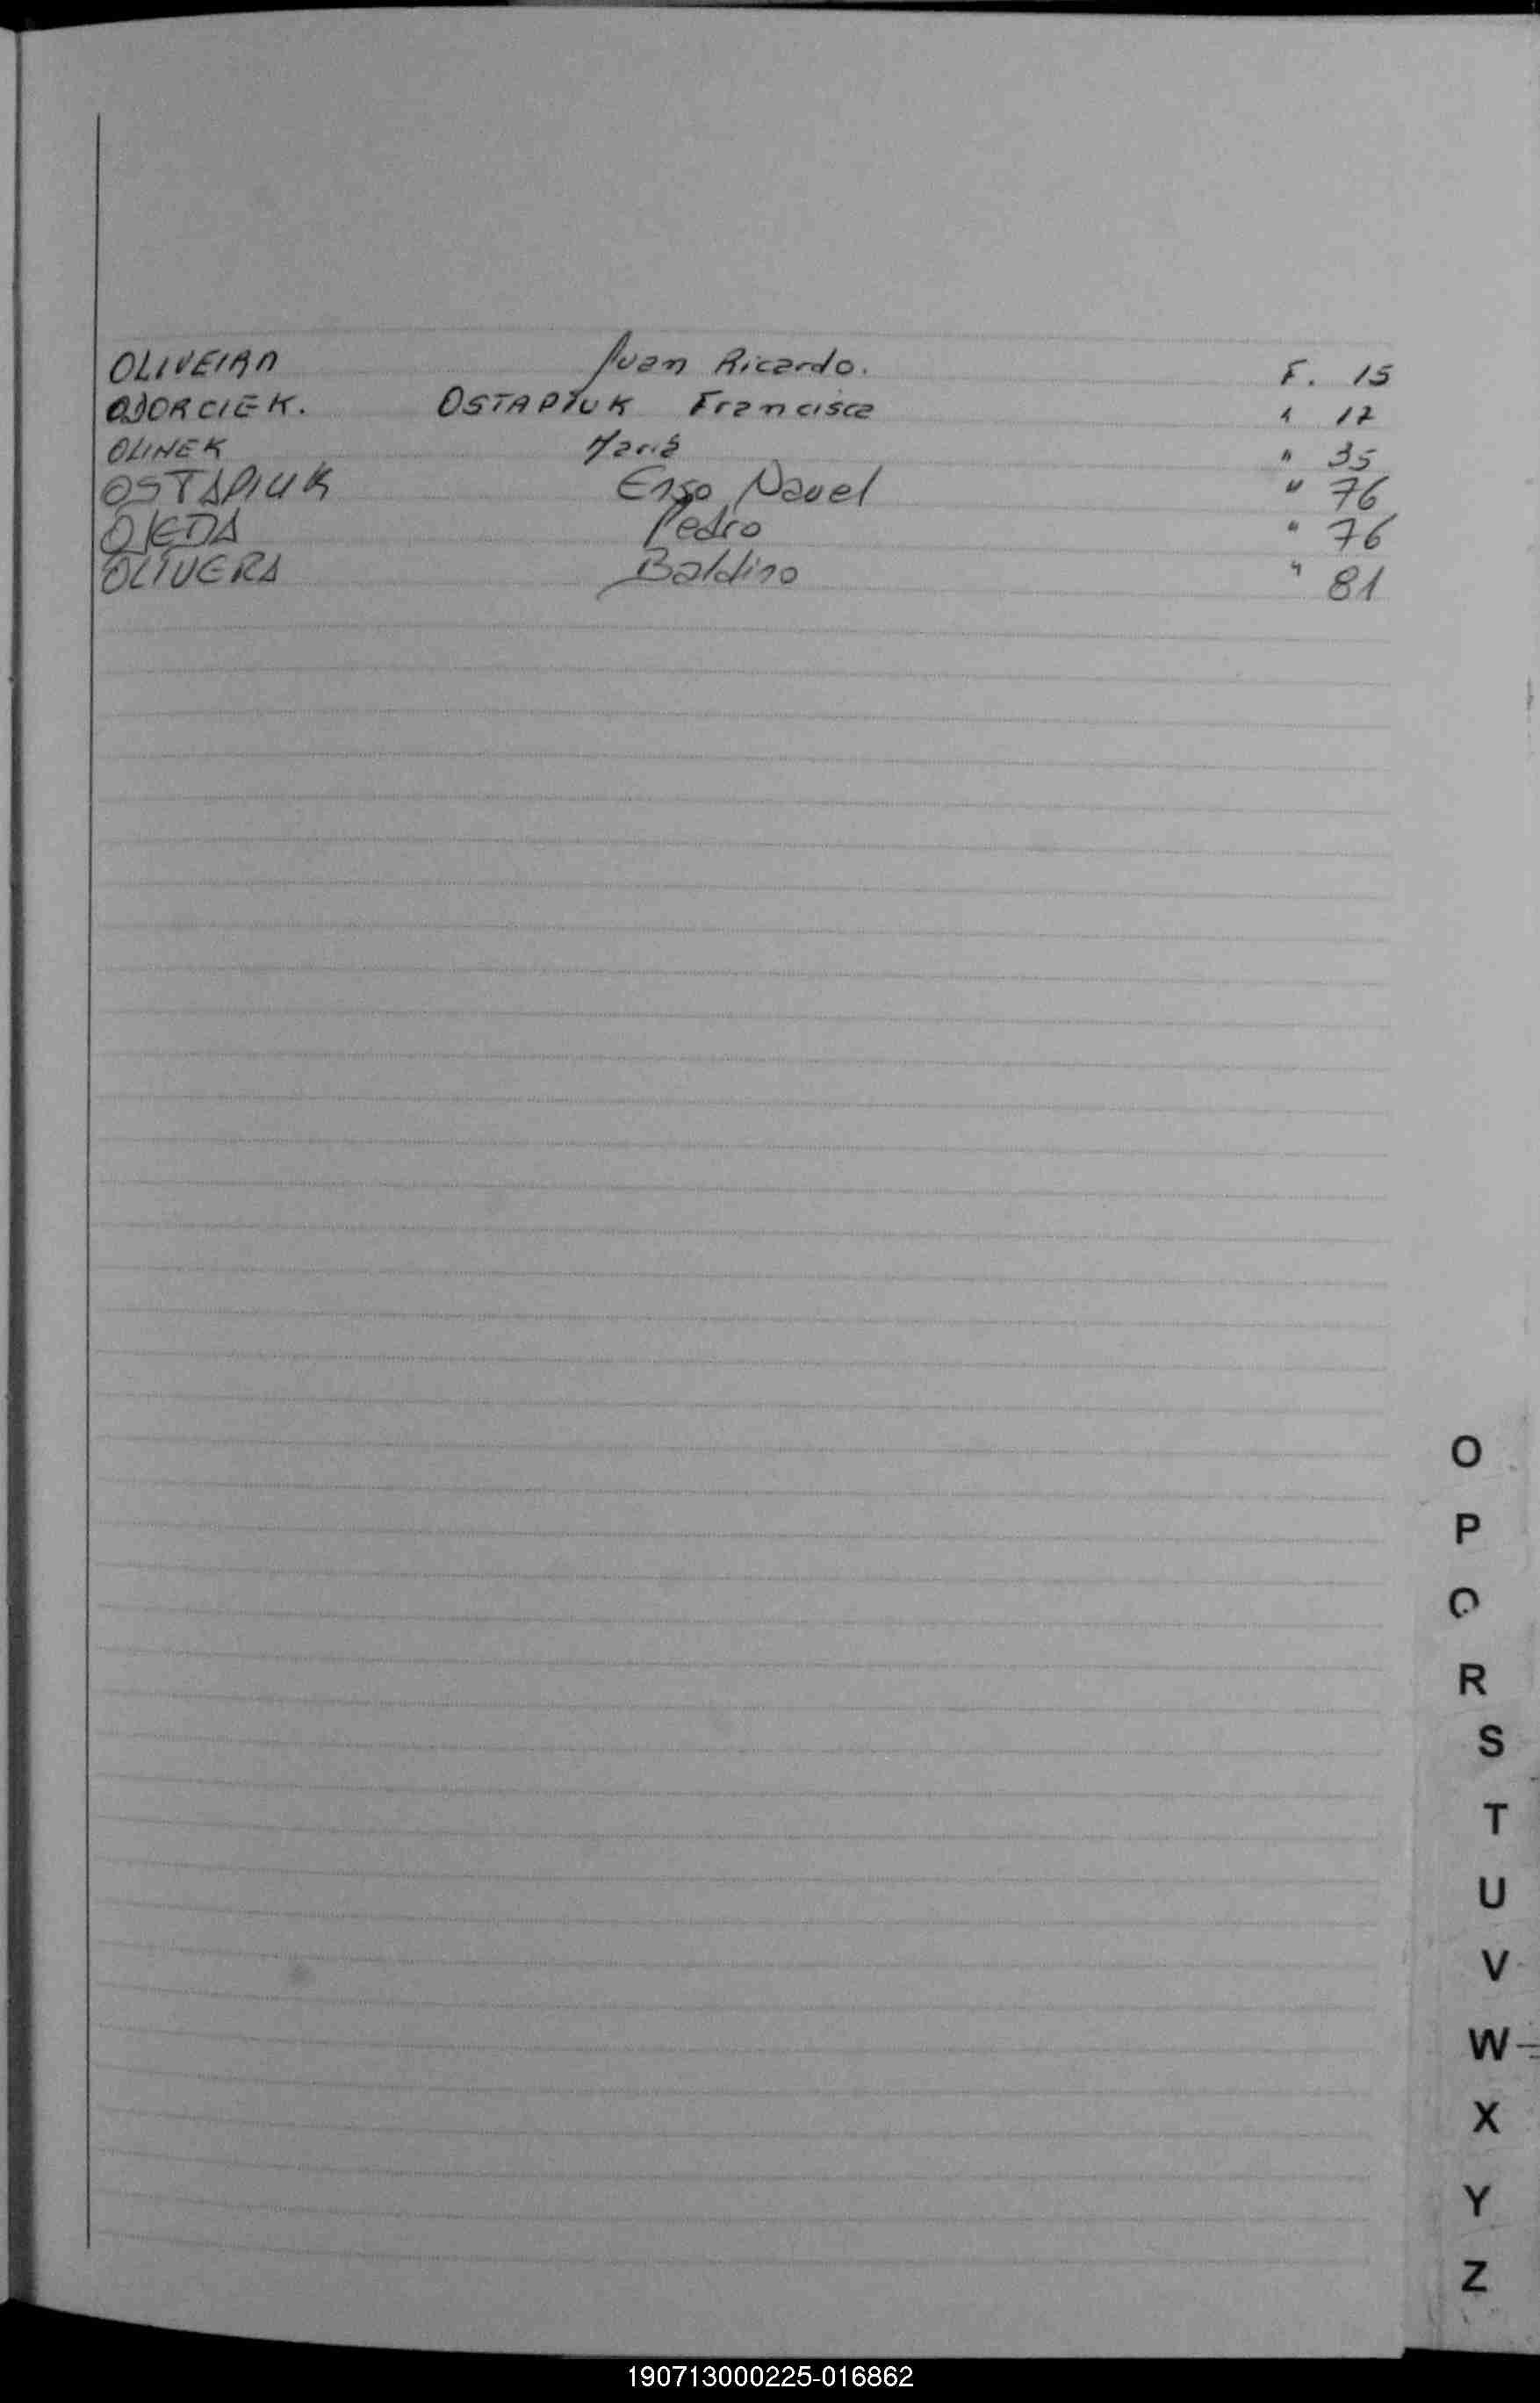 OLIVEIRA Juan Ricardo. F. 15
OJORCIEK. OSTAPIUK Francisca " 17
OLINEK María " 35
OSTAPIUK Enso Nauel " 76
OJEDA Pedro " 76
OLIVERA Baldino " 81
O
P
Q
R
S
T
U
V
W
X
Y
Z
190713000225-016862